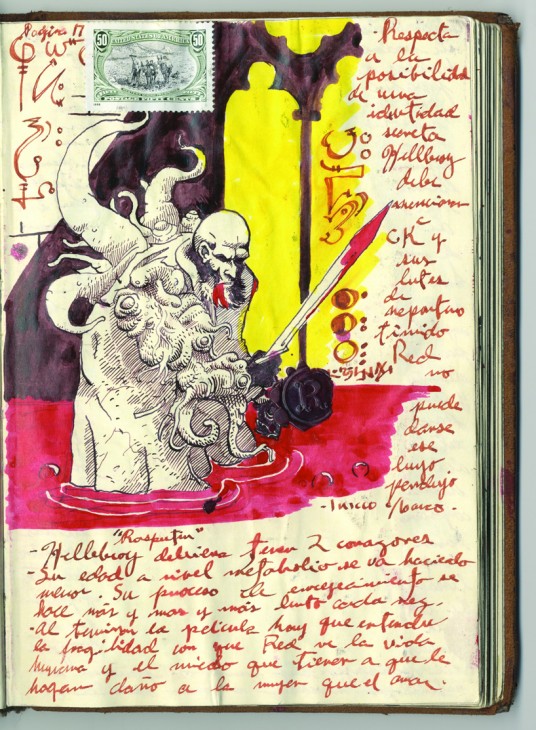 Página 17
50
UNITED STATES OF AMERICA
50
POSTAGE FIFTY CENTS
-Respecto
a la
posibilidad
de una
identidad
secreta
Hellboy
debe
mencionar
CK y
sus
lutes
de
reportero
tímido
Red
no
puede
darse
ese
lujo
pendejo
R
-Inicio Marco-
"Rasputin"
-Hellboy debiera tener 2 corazones
-Su edad a nivel metabolico se va haciendo
menor. Su proceso de envejecimiento se
hace más y mas y más lento cada vez.
-Al terminar la pelicula hay que entender
la fragilidad con que Red ve la vida
humana y el miedo que tiene a que le
hagan daño a la mujer que el ama.